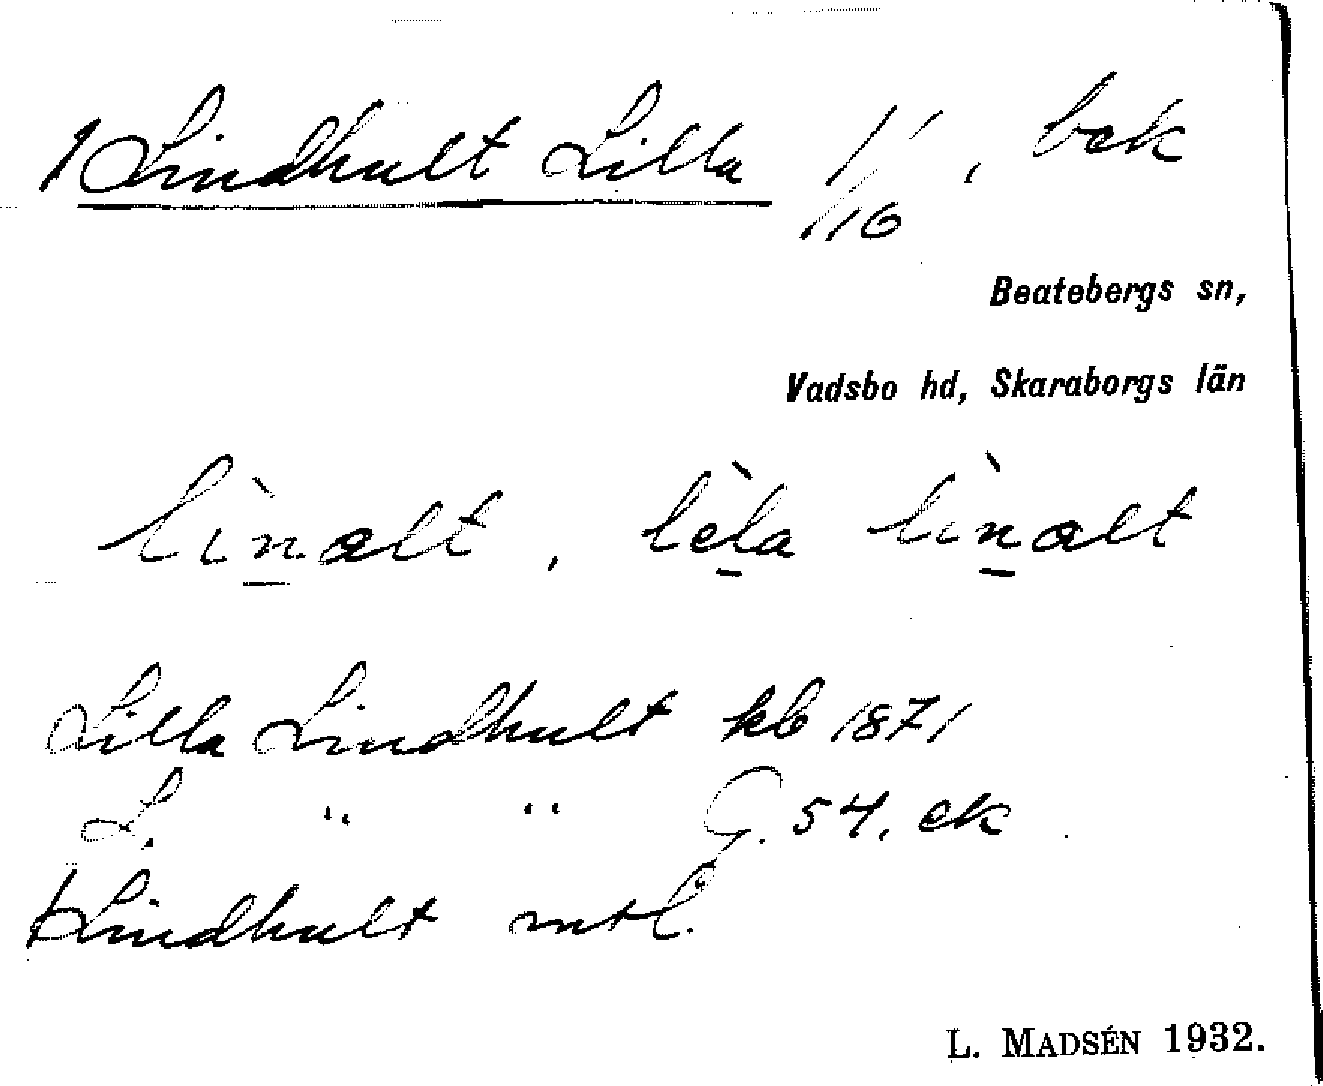 Lindhult Lilla 1/16, bek
Beatebergs sn,
Vadsbo hd, Skaraborgs län
lìnalt, lèla lìnalt
Lilla Lindhult kb 1871
L. " " G. 54. ek
Lindhult mtl.
L. MADSÉN 1932.